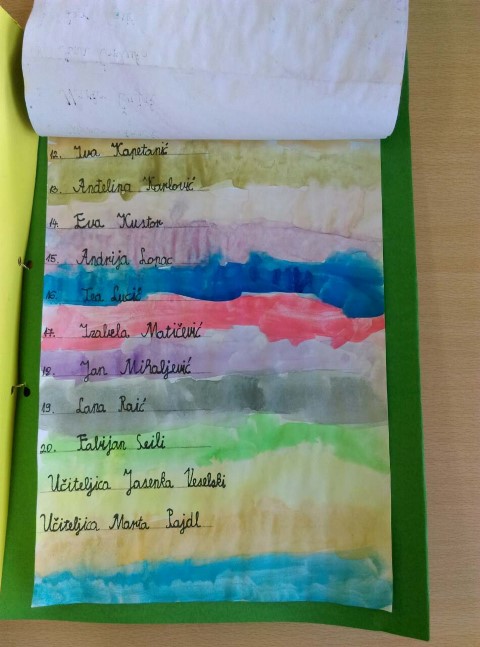 12. Iva Kapetanić
13. Anđelina Karlović
14. Eva Kustor
15. Andrija Lopac
16. Tea Lucić
17. Izabela Matičević
18. Jan Mihaljević
19. Lana Raić
20. Fabijan Seili
Učiteljica Jasenka Veselski
Učiteljica Marta Pajdl